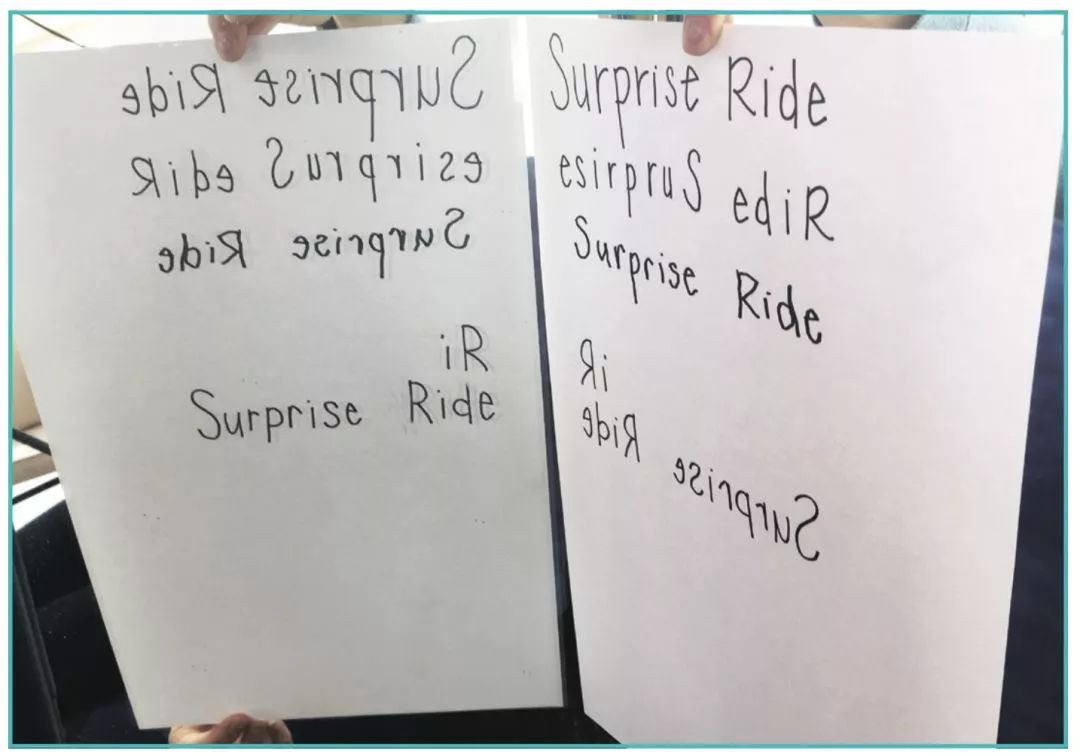 Surprise Ride
esirpruS ediR
Surprise Ride
iR
Surprise Ride
Surprise Ride
esirpruS ediR
Surprise Ride
iR
Surprise Ride